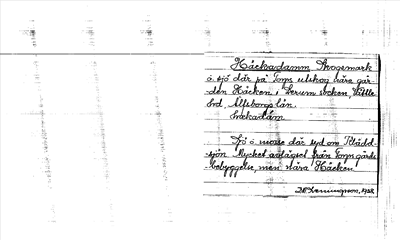 Häckadamm Skogsmark
o. sjö där på Torps utskog nära går-
den Häcken, Lerum socken, Vättle
hd, Älfsborgs län.
häckadám
Sjö o. mosse där syd om Blädd-
sjön. Mycket avlägset från Torps gårds
bebyggelse, men nära Häcken.